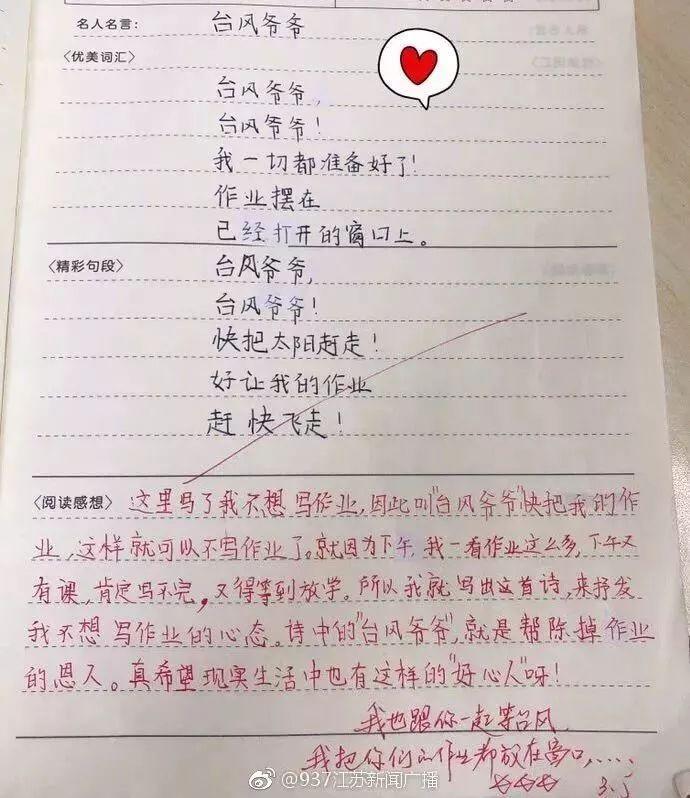 名人名言： 台风爷爷
〈优美词汇〉
台风爷爷，
台风爷爷！
我一切都准备好了！
作业摆在
已经打开的窗口上。
〈精彩句段〉 台风爷爷，
台风爷爷！
快把太阳赶走！
好让我的作业
赶快飞走！
〈阅读感想〉 这里写了我不想写作业，因此叫"台风爷爷"快把我的作
业，这样就可以不写作业了。就因为下午，我一看作业这么多，下午又
有课，肯定写不完，又得等到放学。所以我就写出这首诗，来抒发
我不想写作业的心态。诗中的"台风爷爷"，就是帮除掉作业
的恩人。真希望现实生活中也有这样的"好心人"呀！
我也跟你一起等台风
我把你们的作业都放在窗口，……
☆☆☆ 3.5
@937江苏新闻广播